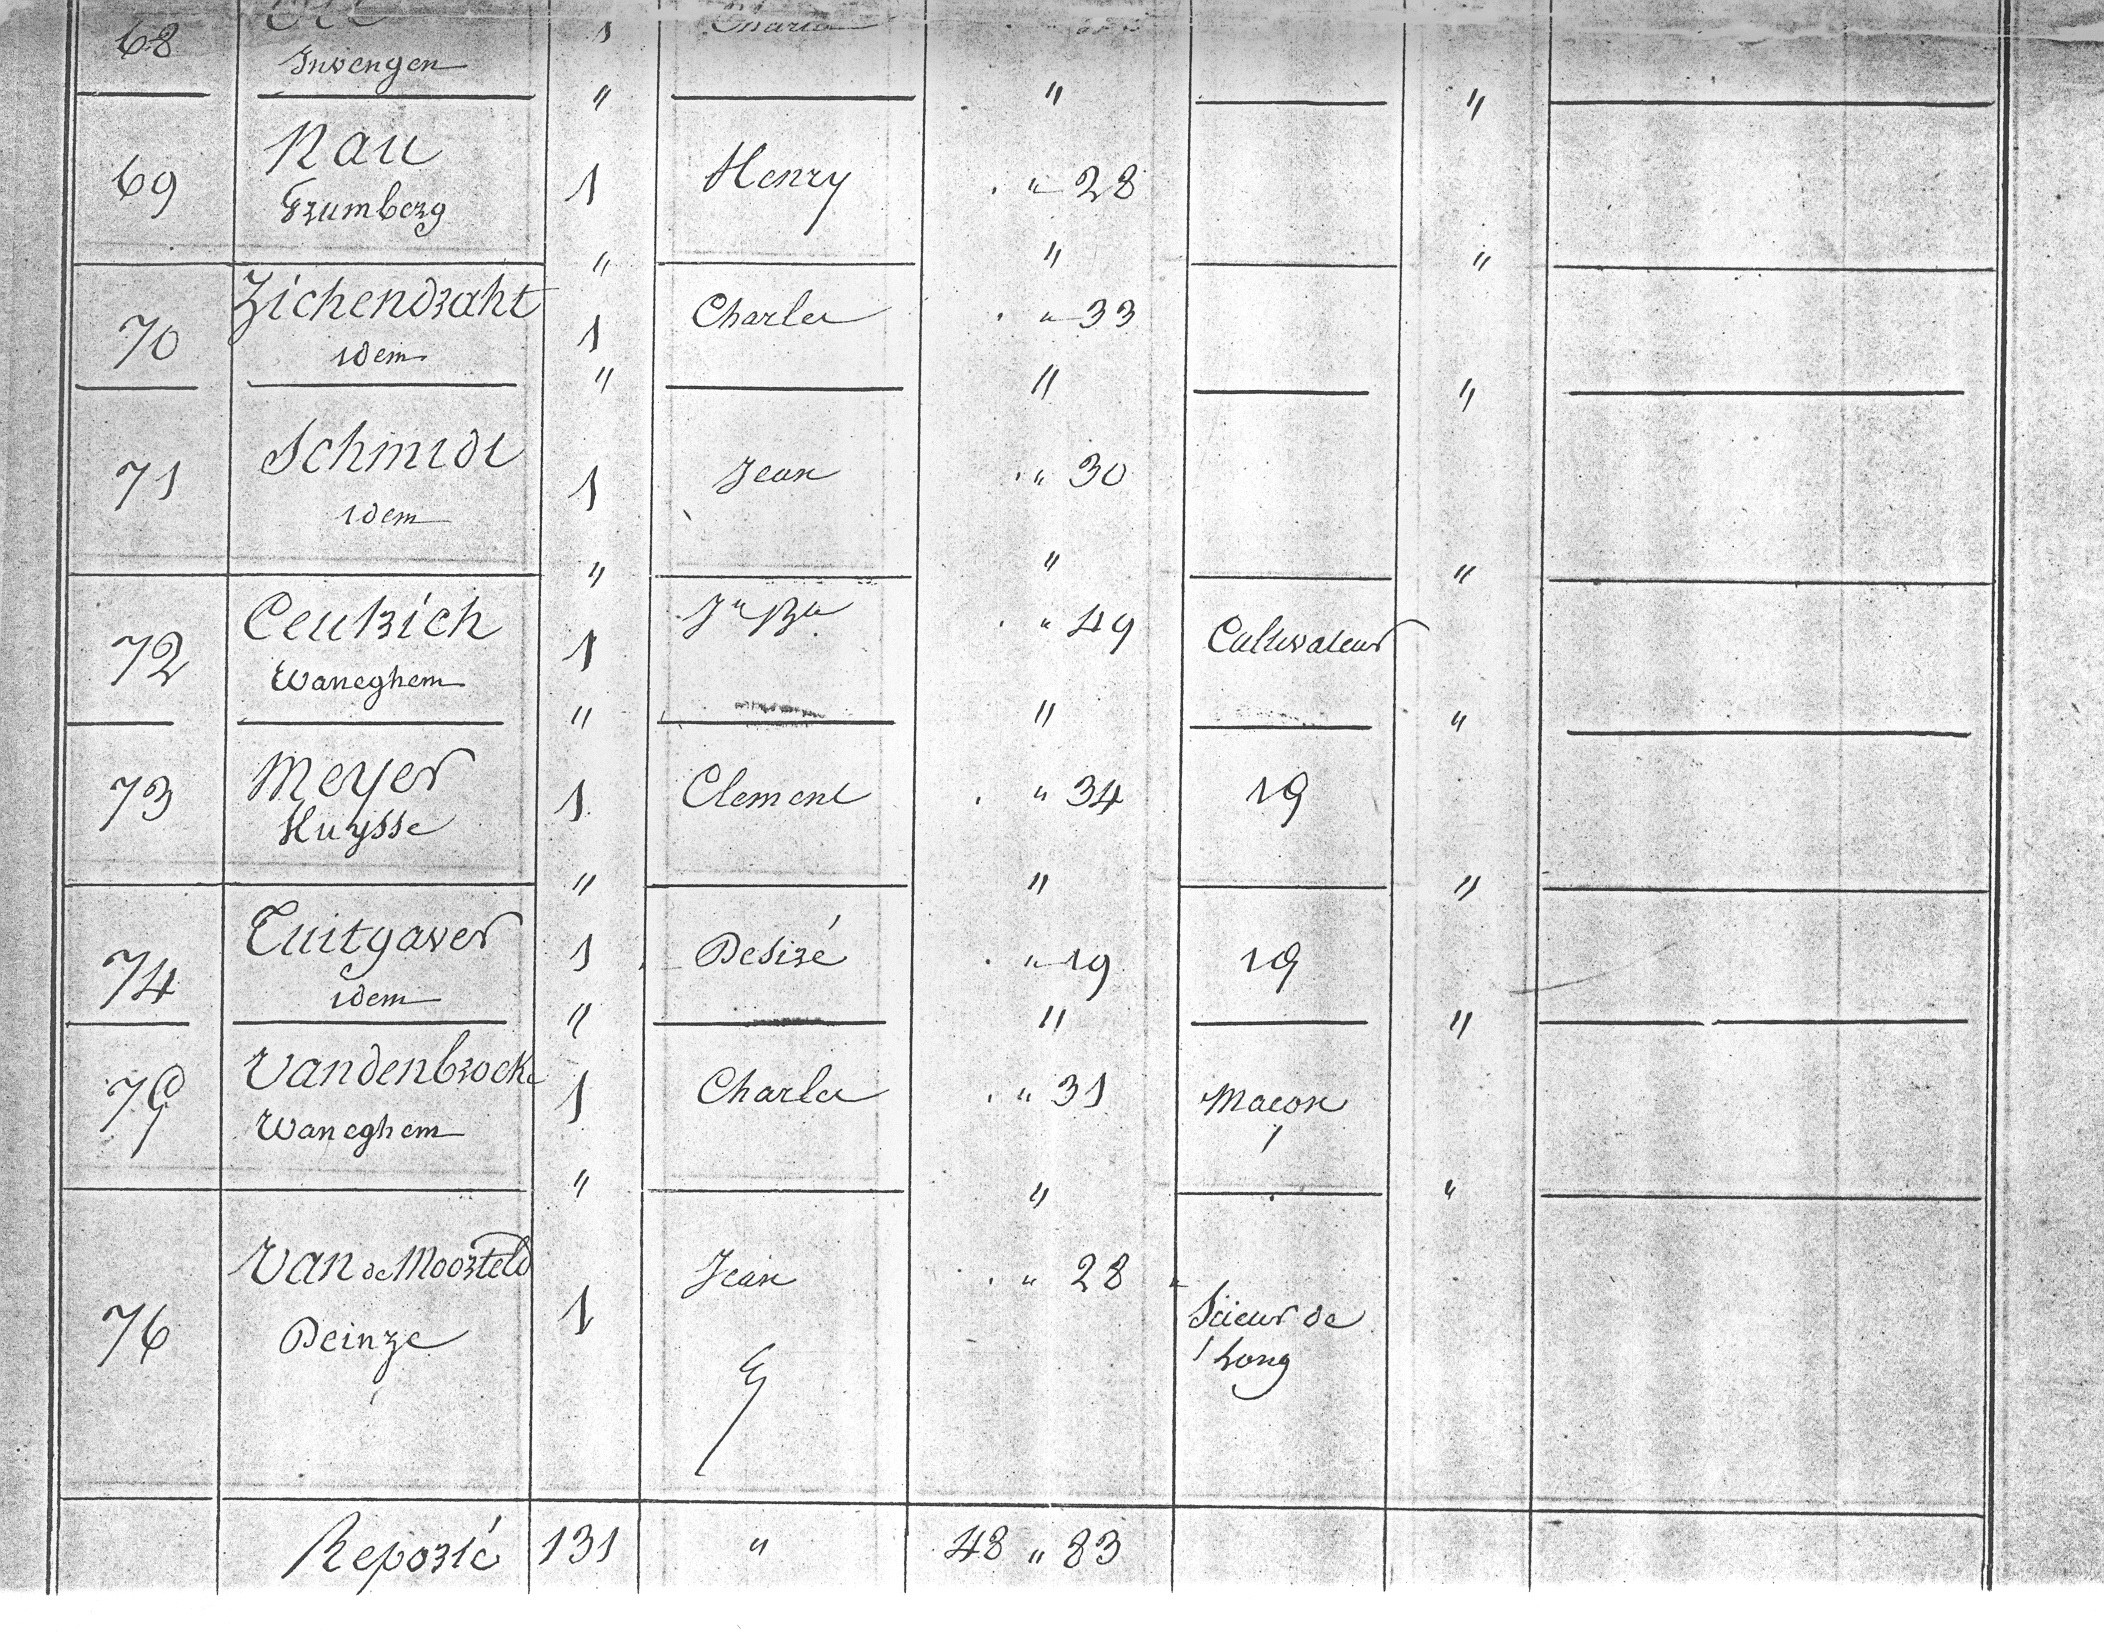 68 1
Invengen
" " "
69 Nau 1 Henry " 28
Grumberg
" " "
70 Zichendraht 1 Charles " 33
idem
" " "
71 Schmidt 1 Jean " 30
idem
" " "
72 Ceukrich 1 Jn Bte " 49 Cultivateur
Waneghem
" " "
73 Meyer 1 Clement " 34 id
Huysse
" " "
74 Tuitgaver 1 Desiré " 19 id
idem
" " "
75 Vandenbrocke 1 Charles " 31 Macon
Waneghem
" " "
76 Van de Moorteld 1 Jean " 28 Scieur de
Deinze long
Reporté 131 " 48 " 83